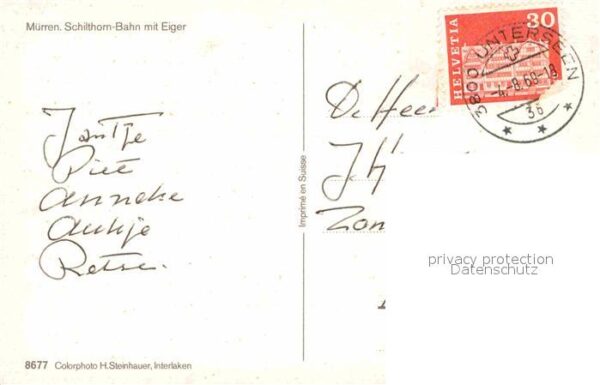 Mürren. Schilthorn-Bahn mit Eiger
HELVETIA
30
3800 UNTERSEEN
-4.-8.69-18
36
Jantje
Piet
Anneke
Aukje
Retse.
De Hee
JH
Zon
Imprimé en Suisse
privacy protection
Datenschutz
8677 Colorphoto H.Steinhauer, Interlaken